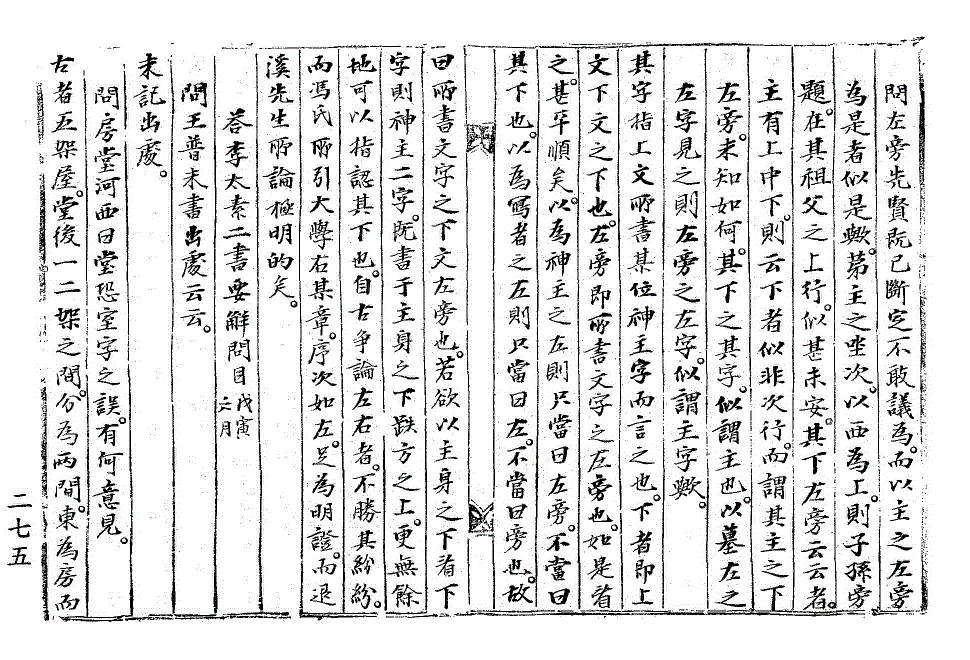 問左旁先賢旣已斷定不敢議爲。而以主之左旁
為是者似是歟。第主之坐次。以西為上。則子孫旁
題。在其祖父之上行。似甚未安。其下左旁云云者。
主有上中下。則云下者似非次行。而謂其主之下
左旁。未知如何。其下之其字。似謂主也。以墓左之
左字見之則左旁之左字。似謂主字歟。
其字指上文所書某位神主字而言之也。下者即上
文下文之下也。左旁即所書文字之左旁也。如是看
之。甚平順矣。以為神主之左則只當曰左旁。不當曰
其下也。以為寫者之左則只當曰左。不當曰旁也。故
曰所書文字之下文左旁也。若欲以主身之下看下
字則神主二字。旣書于主身之下趺方之上。更無餘
地可以指認其下也。自古爭論左右者。不勝其紛紛。
而馮氏所引大學右某章。序次如左。足為明證。而退
溪先生所論極明的矣。
答李太素二書要解問目戊寅六月
問王普未書出處云云。
未記出處。
問房堂河西曰堂恐室字之誤。有何意見。
古者五架屋。堂後一二架之間。分為兩間。東為房而
二七五